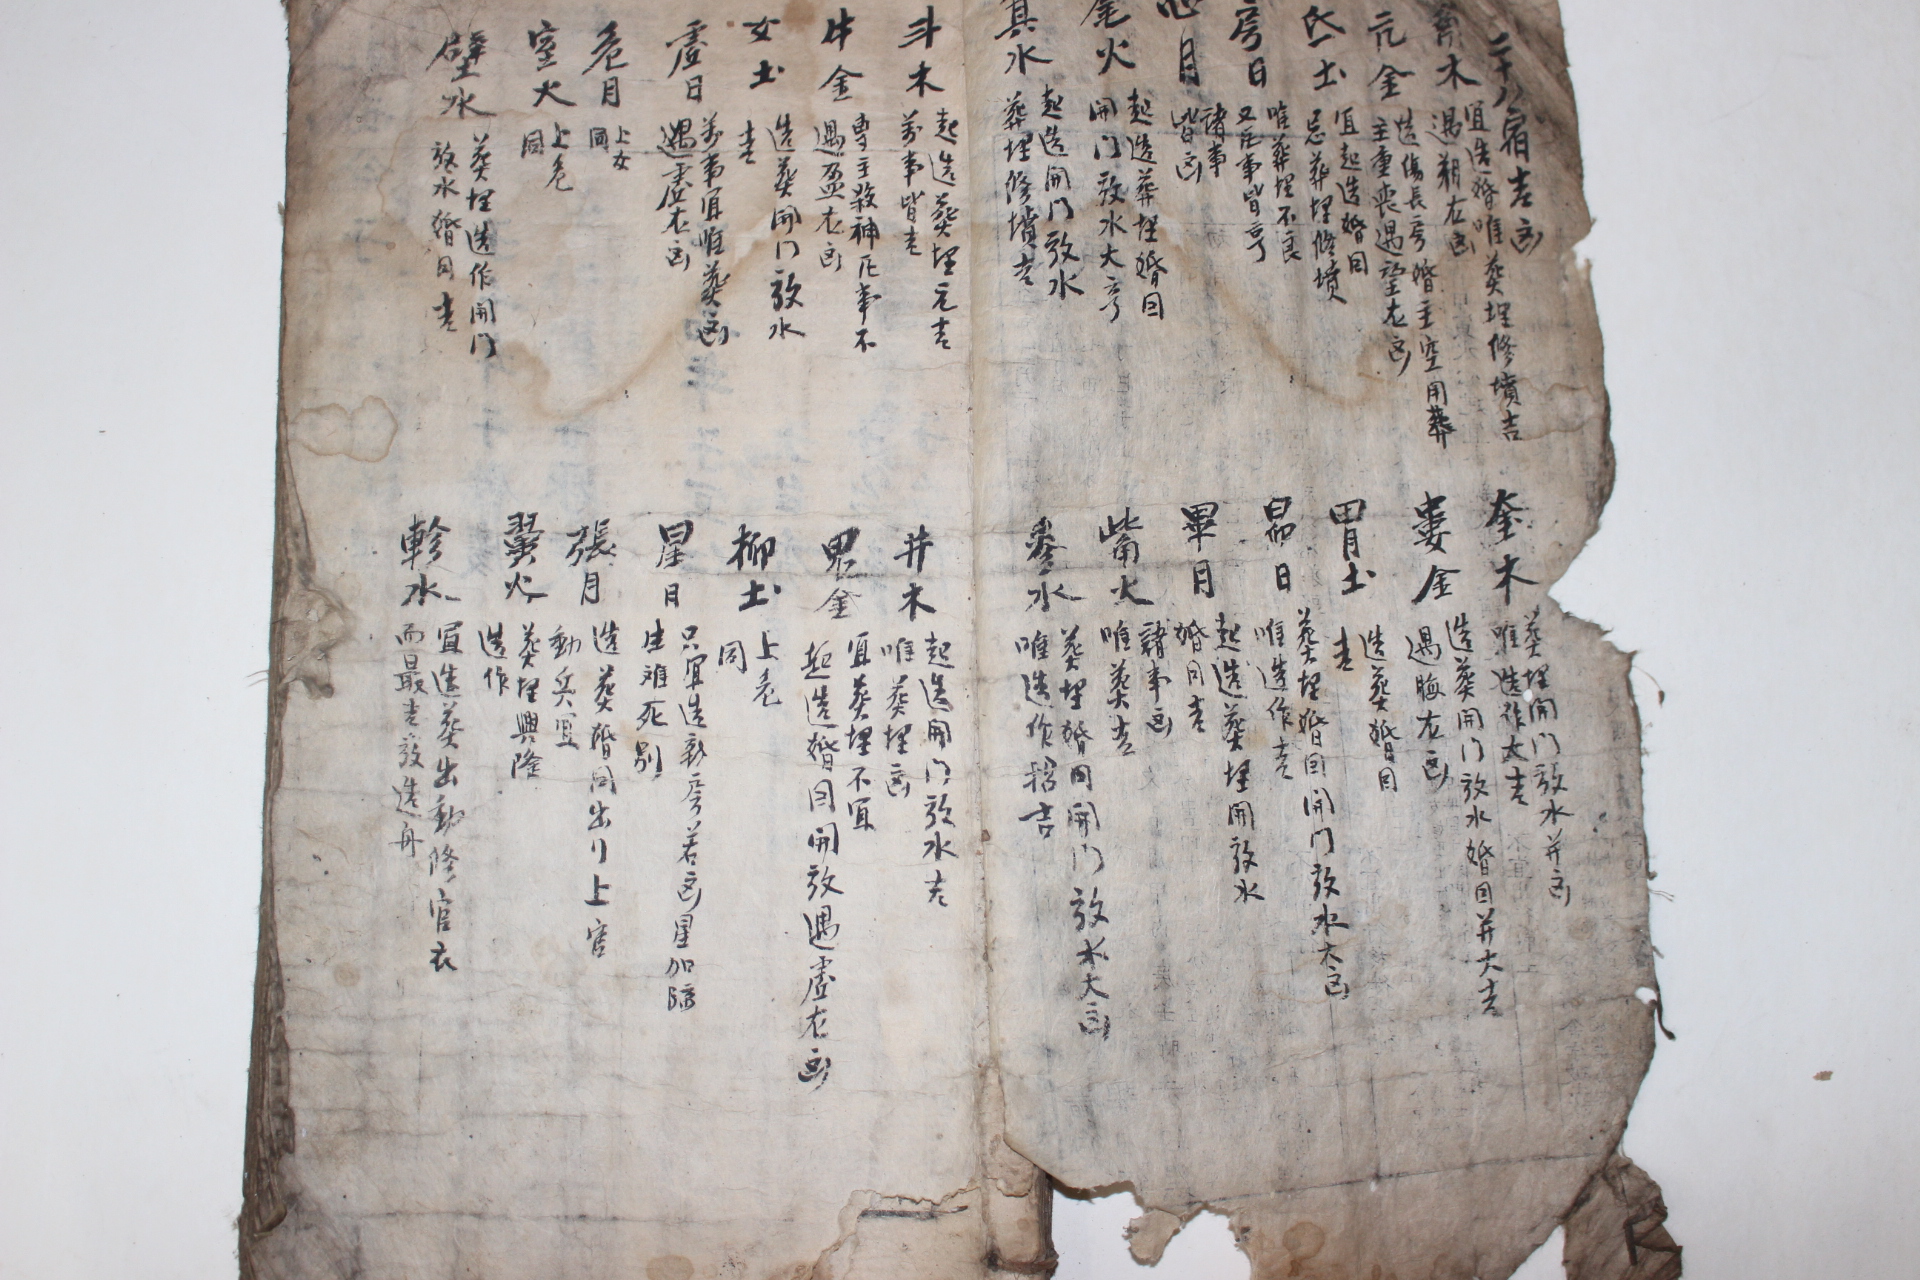 二十八宿吉凶
角木
宜造婚唯葬埋修墳吉
遇朔在凶
亢金
造傷長房婚主空用葬
主重喪遇望在凶
氐土
宜起造婚因
忌葬埋修墳
房日
唯葬埋不良
又凡事皆亨
心月
諸事
皆凶
尾火
起造葬埋婚因
開門放水大亨
箕水
起造開門放水
葬埋修墳吉
斗木
起造葬埋元吉
萬事皆吉
牛金
專主殺神凡事不
遇盈在凶
女土
造葬開門放水
吉
虛日
萬事宜唯葬凶
遇虛在凶
危月
上女
同
室火
上危
同
壁水
葬埋造作開門
放水婚因吉
奎木
葬埋開門放水并凶
唯造作大吉
婁金
造葬開門放水婚因并大吉
遇晦在凶
胃土
造葬婚因
吉
昴日
葬埋婚因開門放水大凶
唯造作吉
畢月
起造葬埋開放水
婚因吉
觜火
諸事凶
唯葬吉
參水
葬埋婚因開門放水大凶
唯造作招吉
井木
起造開門放水吉
唯葬埋凶
鬼金
宜葬埋不宜
起造婚因開放遇虛在凶
柳土
上危
同
星日
只宜造新房若凶星加臨
生难死別
張月
造葬婚因出行上官
動兵宜
翼火
葬埋興隆
造作
軫水
宜造葬出動修官衣
而最吉放造舟